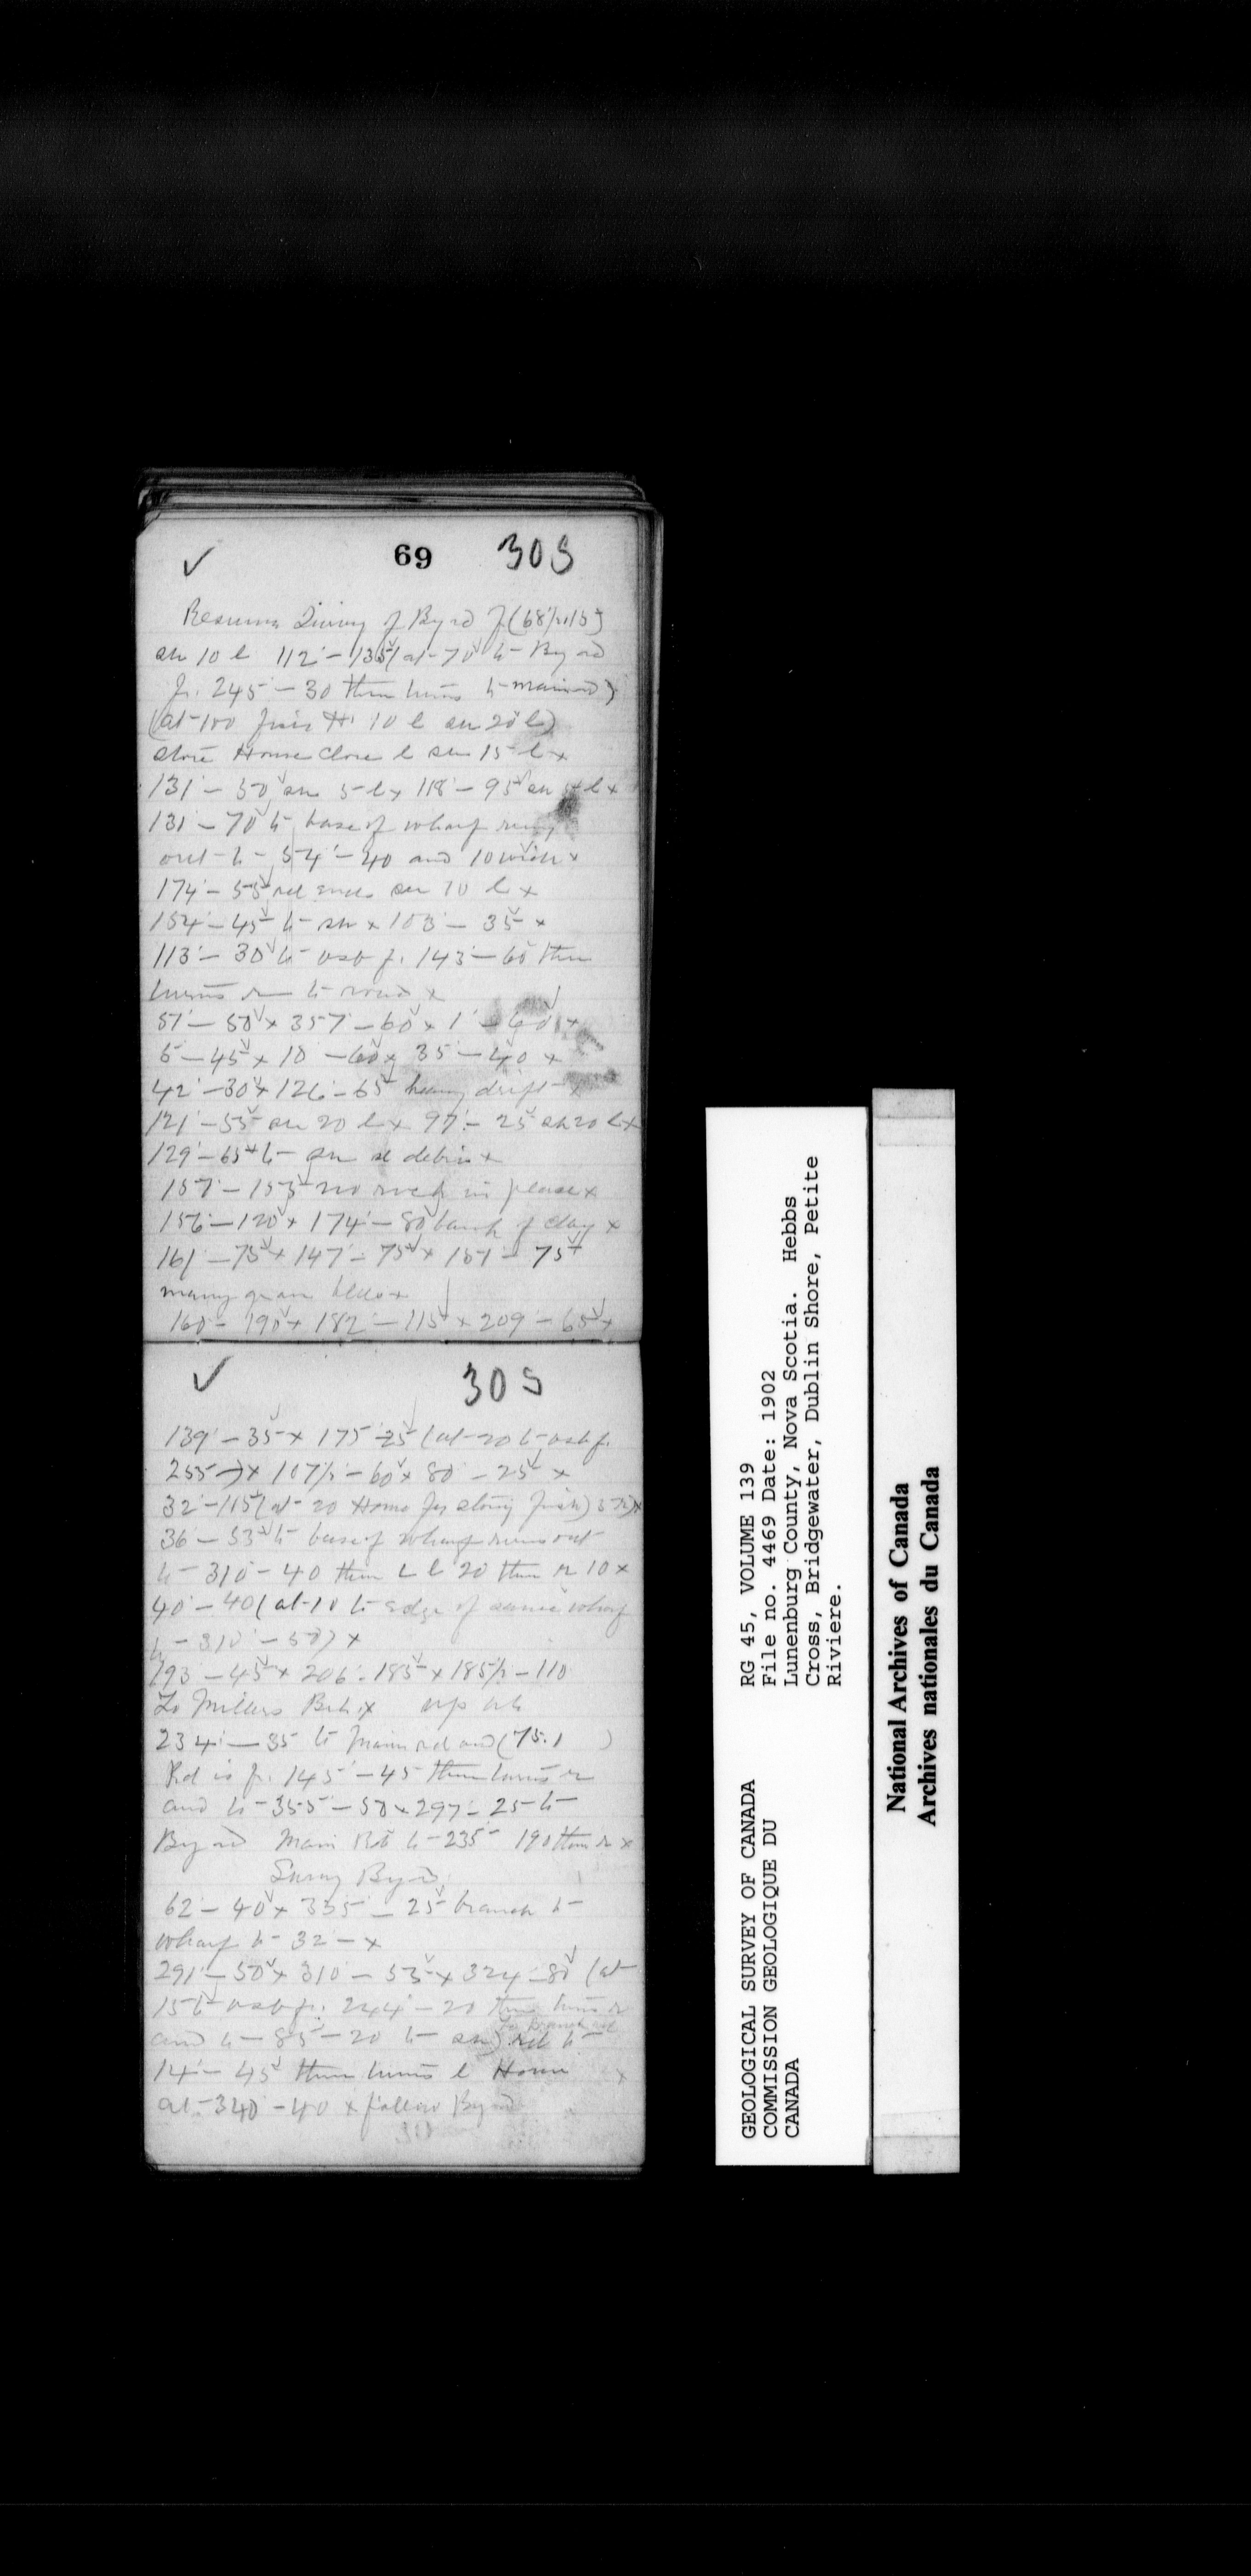 ✓ 69 30S
Resume Survey of By rd fr (68/r/15)
sh 10 l 112° – 135 (at 70 to By rd
fr. 245° – 30 then turns to main rd)
(at 100 H 10 l sh 20 l)
store House close l sh 15 l x
131° – 50 sh 5 l x 118° – 95 sh l x
131° – 70 to base of wharf runs
out to 54° – 40 and 10 wide x
174° – 55 rd ends sh 10 l x
154° – 45 to sh x 103° – 35 x
113° – 30 to fr. 143° – 60 then
turns r to road x
51° – 50 x 357° – 60 x 1° – 60 x
5 – 45 x 10 – 60 x 35° – 40 x
42° – 30 x 126° – 65 heavy drift x
121° – 55 sh 20 l x 97° – 25 sh 20 l x
129° – 65 to sh debris x
157° – 153 no rock in place x
156° – 120 x 174° – 80 bank of clay x
161 – 75 x 147° – 75 x 151° – 75
many x
160° – 190 x 182° – 115 x 209° – 65 x
✓ 30S
139° – 35 x 175 25 (at 20 to fr.
255 –) x 107½ – 60 x 80° – 25 x
32° – 115 (at 20 House for storing fish) x
36 – 53 to base of wharf runs out
to 310° – 40 then L l 20 then r 10 x
40° – 40 (at 10 to edge of same wharf
to – 310° – 50) x
193 – 45 x 206° – 185 x 185½ – 110
To Millers x
234° – 35 to Main rd and (75.1 )
Rd is fr. 145° – 45 then turns r
and to 355° – 50 x 297° – 25 to
By rd Main Rd to 235 190 then r x
Survey By rd.
62 – 40 x 335° – 25 branch to
wharf to 32 – x
291° – 50 x 310° – 53 x 324° – 80 (at
15 to fr. 244° – 20 then turns r
and to 85° – 20 to sh) rd to
To branch rd
14° – 45 then turns l House x
at 340° – 40 x follow By rd
GEOLOGICAL SURVEY OF CANADA
COMMISSION GEOLOGIQUE DU
CANADA
RG 45, VOLUME 139
File no. 4469 Date: 1902
Lunenburg County, Nova Scotia. Hebbs
Cross, Bridgewater, Dublin Shore, Petite
Riviere.
National Archives of Canada
Archives nationales du Canada